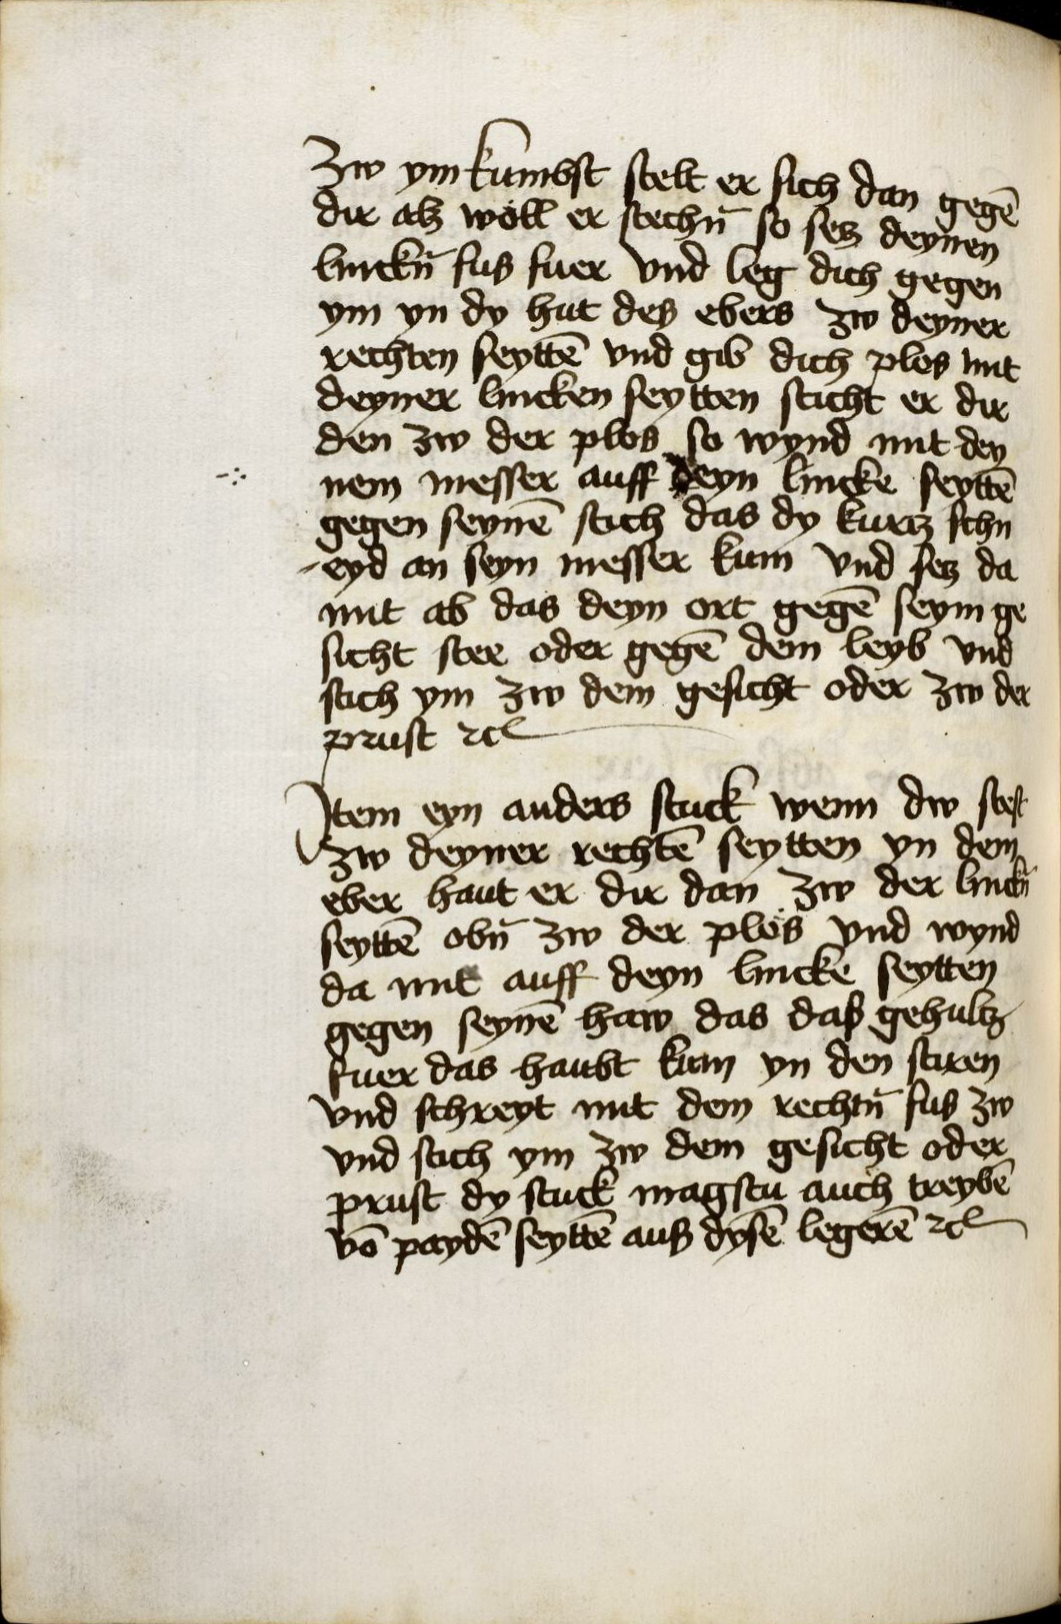 zw ym kumbst stelt er sich dan gegē
dir alß wöll er stechn̄ so secz deynen
linckn̄ fus fuer vnd leg dich gegen
ym yn dy hut des ebers zw deyner
rechten seyttē vnd gib dich plos mit
deyner lincken seytten sticht er dir
den zw der plos so wynd mit dey
nem messer auff deyn lincke seyttē
gegen seynē stich das dy kurcz schn
-eyd an seyn messer kum vnd secz da
mit ab das deyn ort gegē seym ge
sicht stee oder gegē dem leyb vnd
stich ym zw dem gesicht oder zw der
prust ⁊c
Item eyn anders stuck wenn dw stest
zw deyner rechtē seytten yn dem
eber haut er dir dan zw der linckn̄
seyttē obn̄ zw der plos vnd wynd
da mit auff deyn lincke seytten
gegen seynē haw das daß gehultz
fuer das haubt kum yn den stiren
vnd schreyt mit dem rechtn̄ fus zw
vnd stich ym zw dem gesicht oder
prust dy stuck magstu auch treybē
vō paydē seyttē auß dysē legerē ⁊c